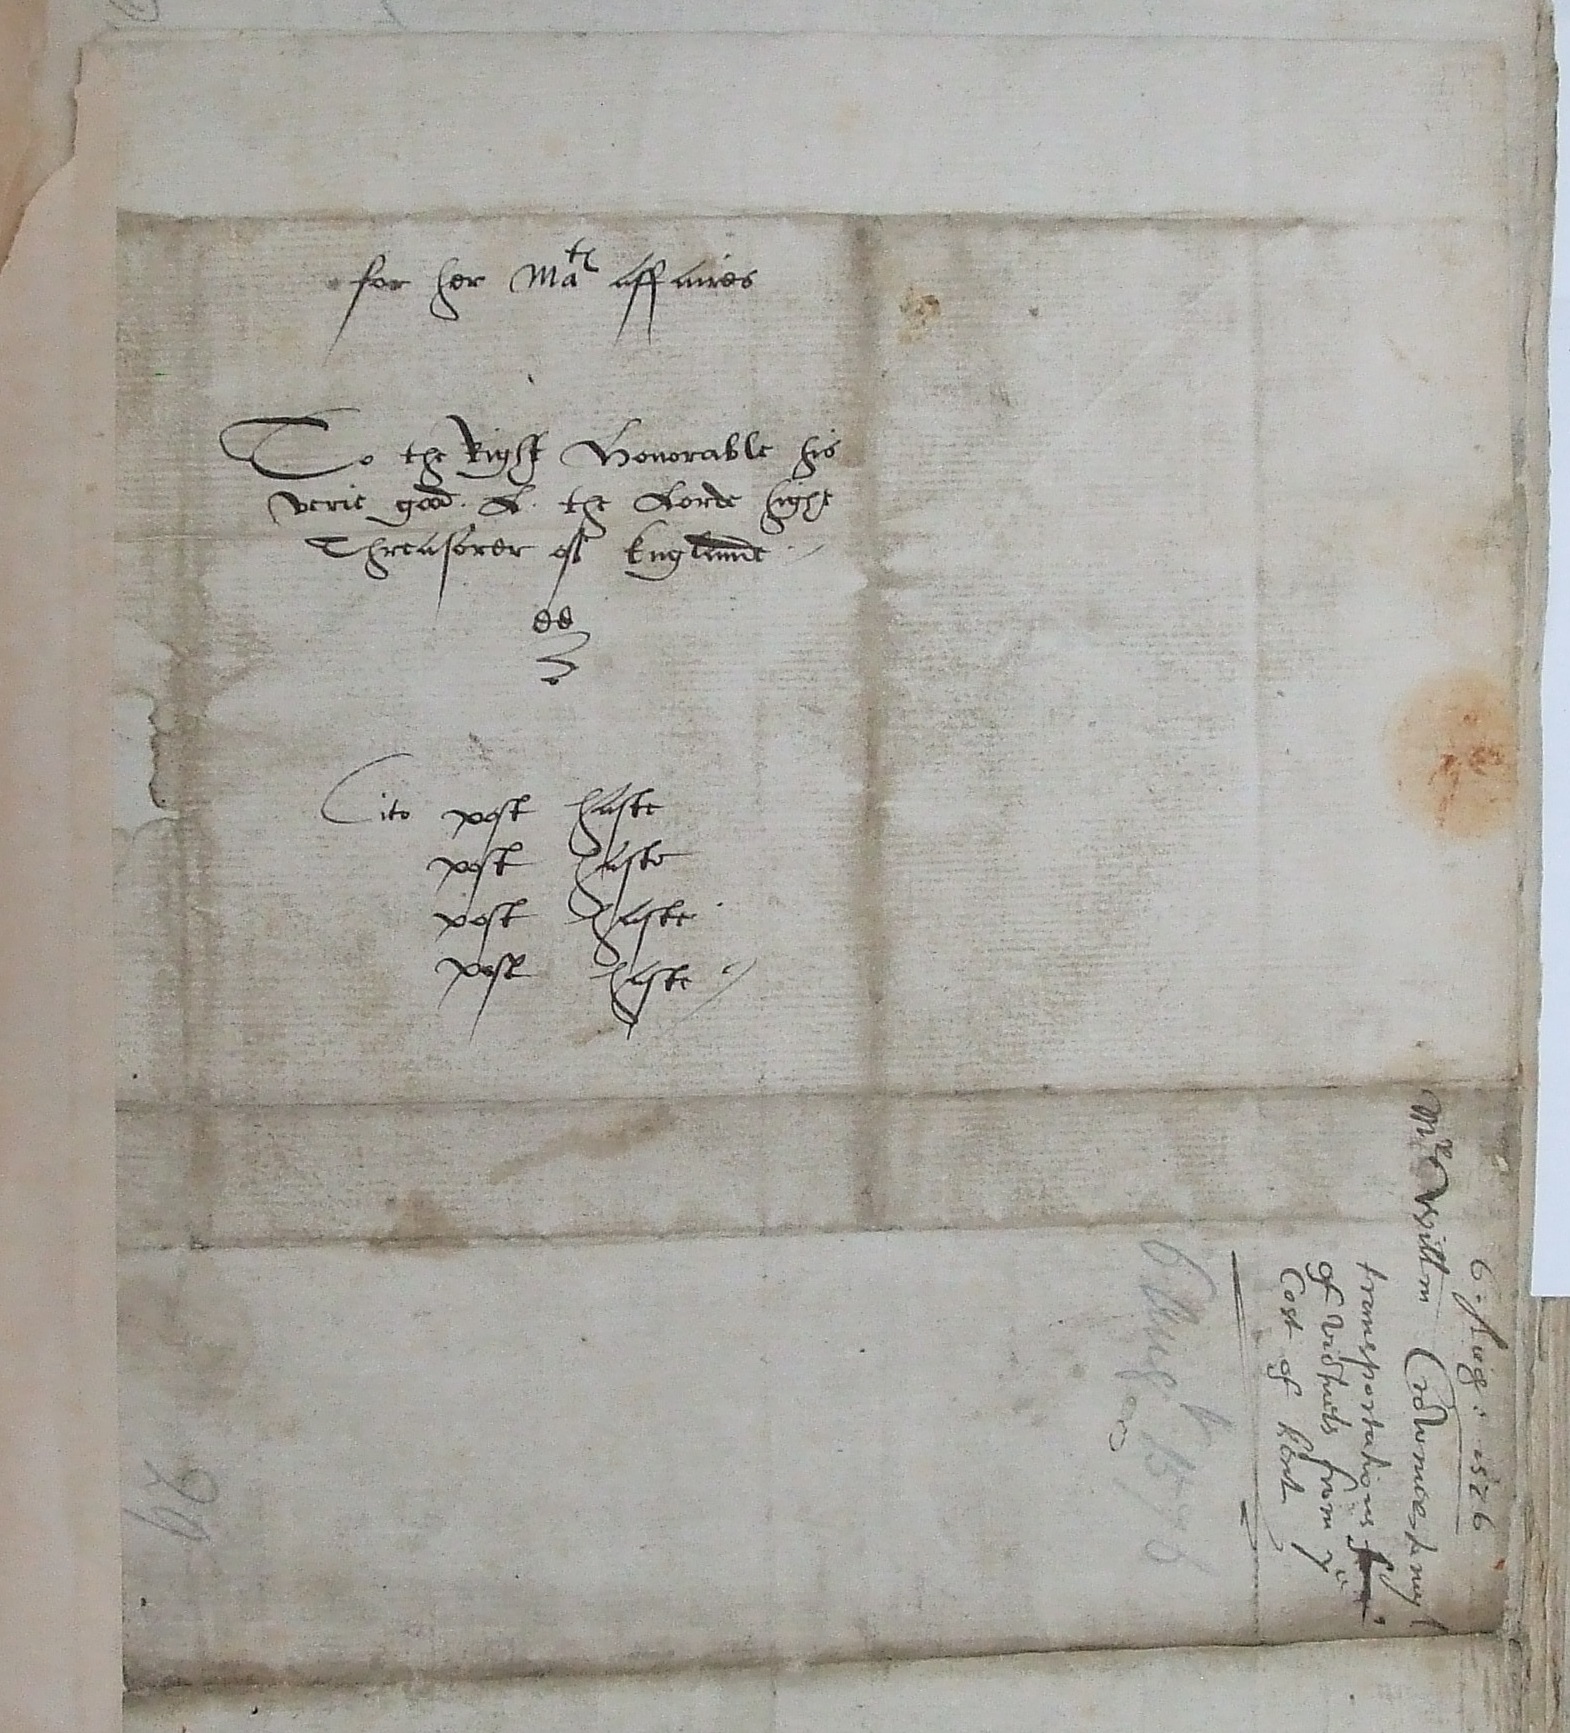 for her Ma^tes affaires
To the Right Honorable his
verie good. L. the Lorde highe
Threasorer of Englande
dd
Cito post haste
post haste
post haste
post haste
6. Aug: 1576
Mr Willm
transportations
of victuels from ye
Cost of Kent
6 Aug 1576